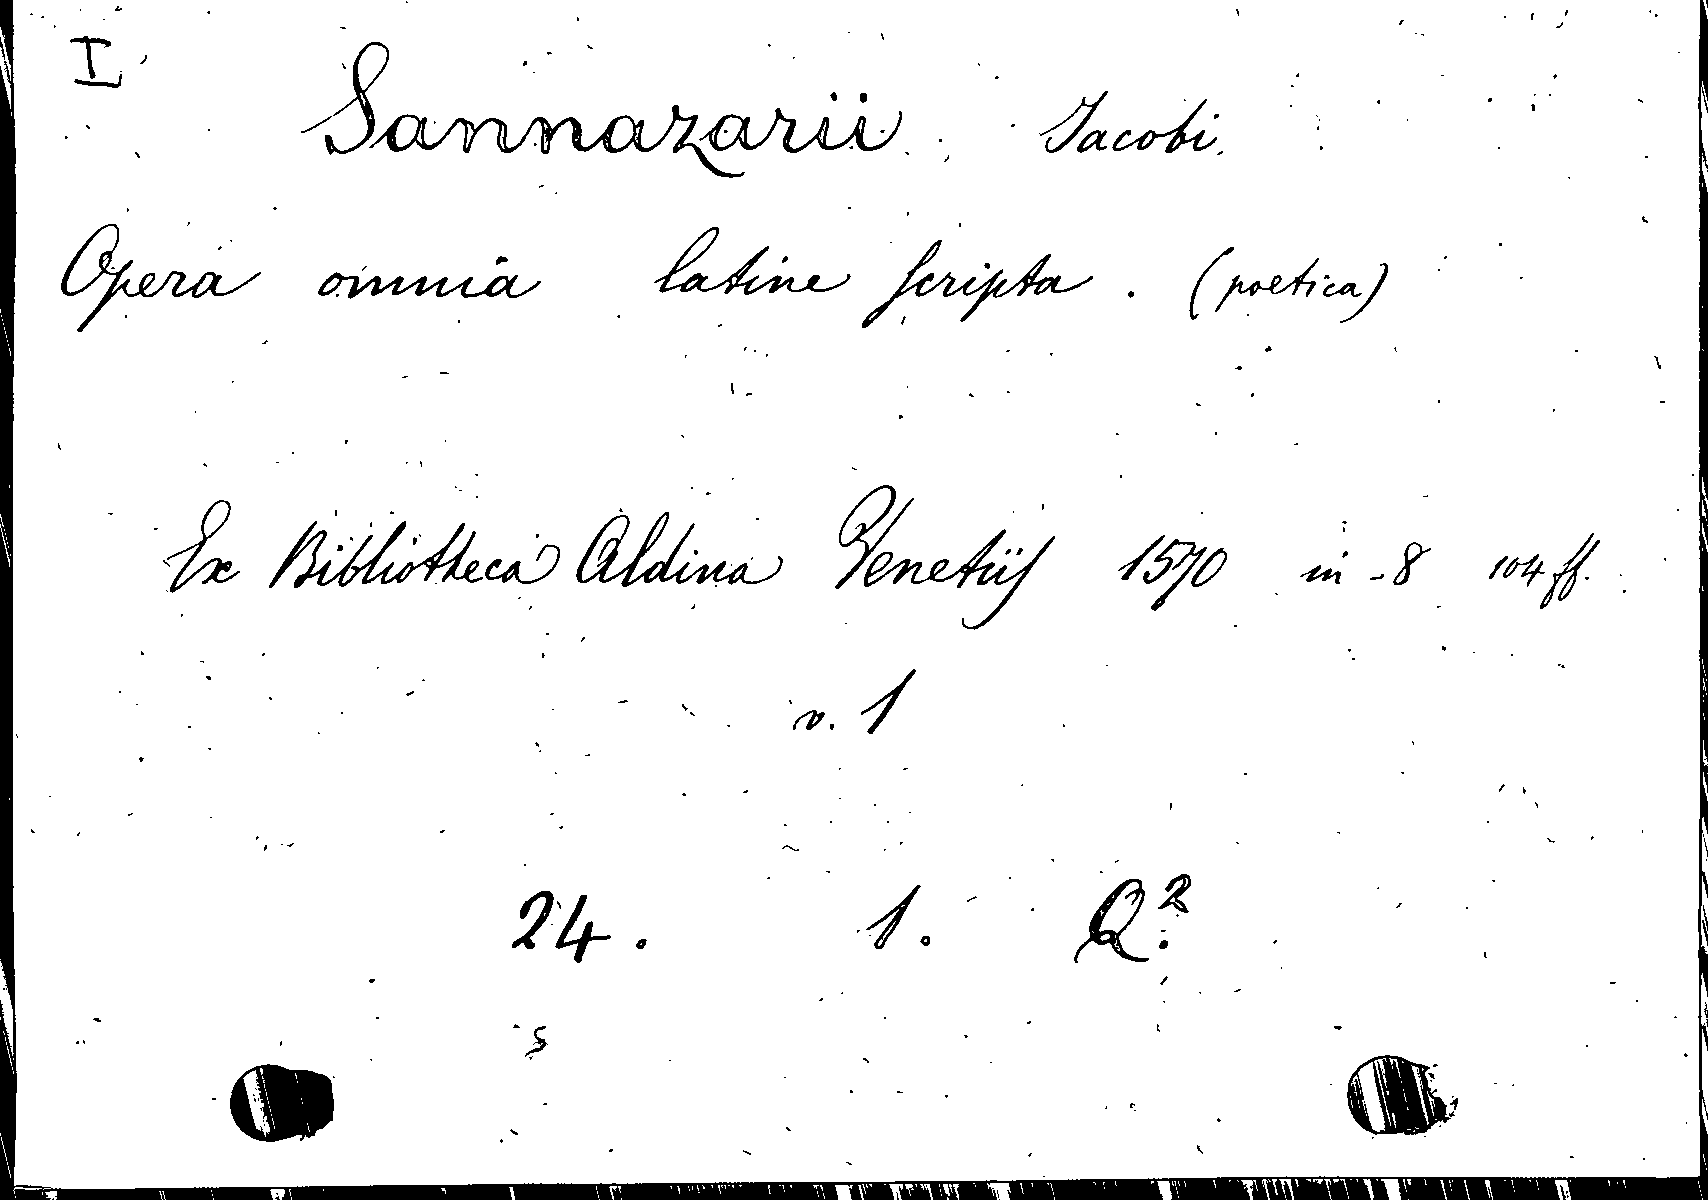 I
Sannazarii Jacobi
Opera omnia latine scripta. (poetica)
Ex Bibliotheca Aldina Venetiis 1570 in-8 104 ff.
v. 1
24. 1. Q.²